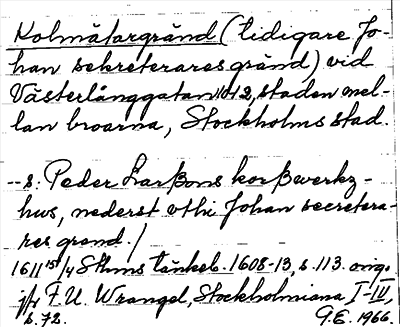 Kolmätargränd (tidigare Jo-
han sekreterares gränd) vid
Västerlånggatan 10-12, staden mel-
lan broarna, Stockholms stad.
--s: Peder Larßons korßwerkz-
hws, nederst vthi Johan secretera-
res grend./
1611 15/4 Sthms tänkeb. 1608-13, s. 113. orig.
jfr F. U. Wrangel, Stockholmiana I-III,
s. 72. G.E. 1966.